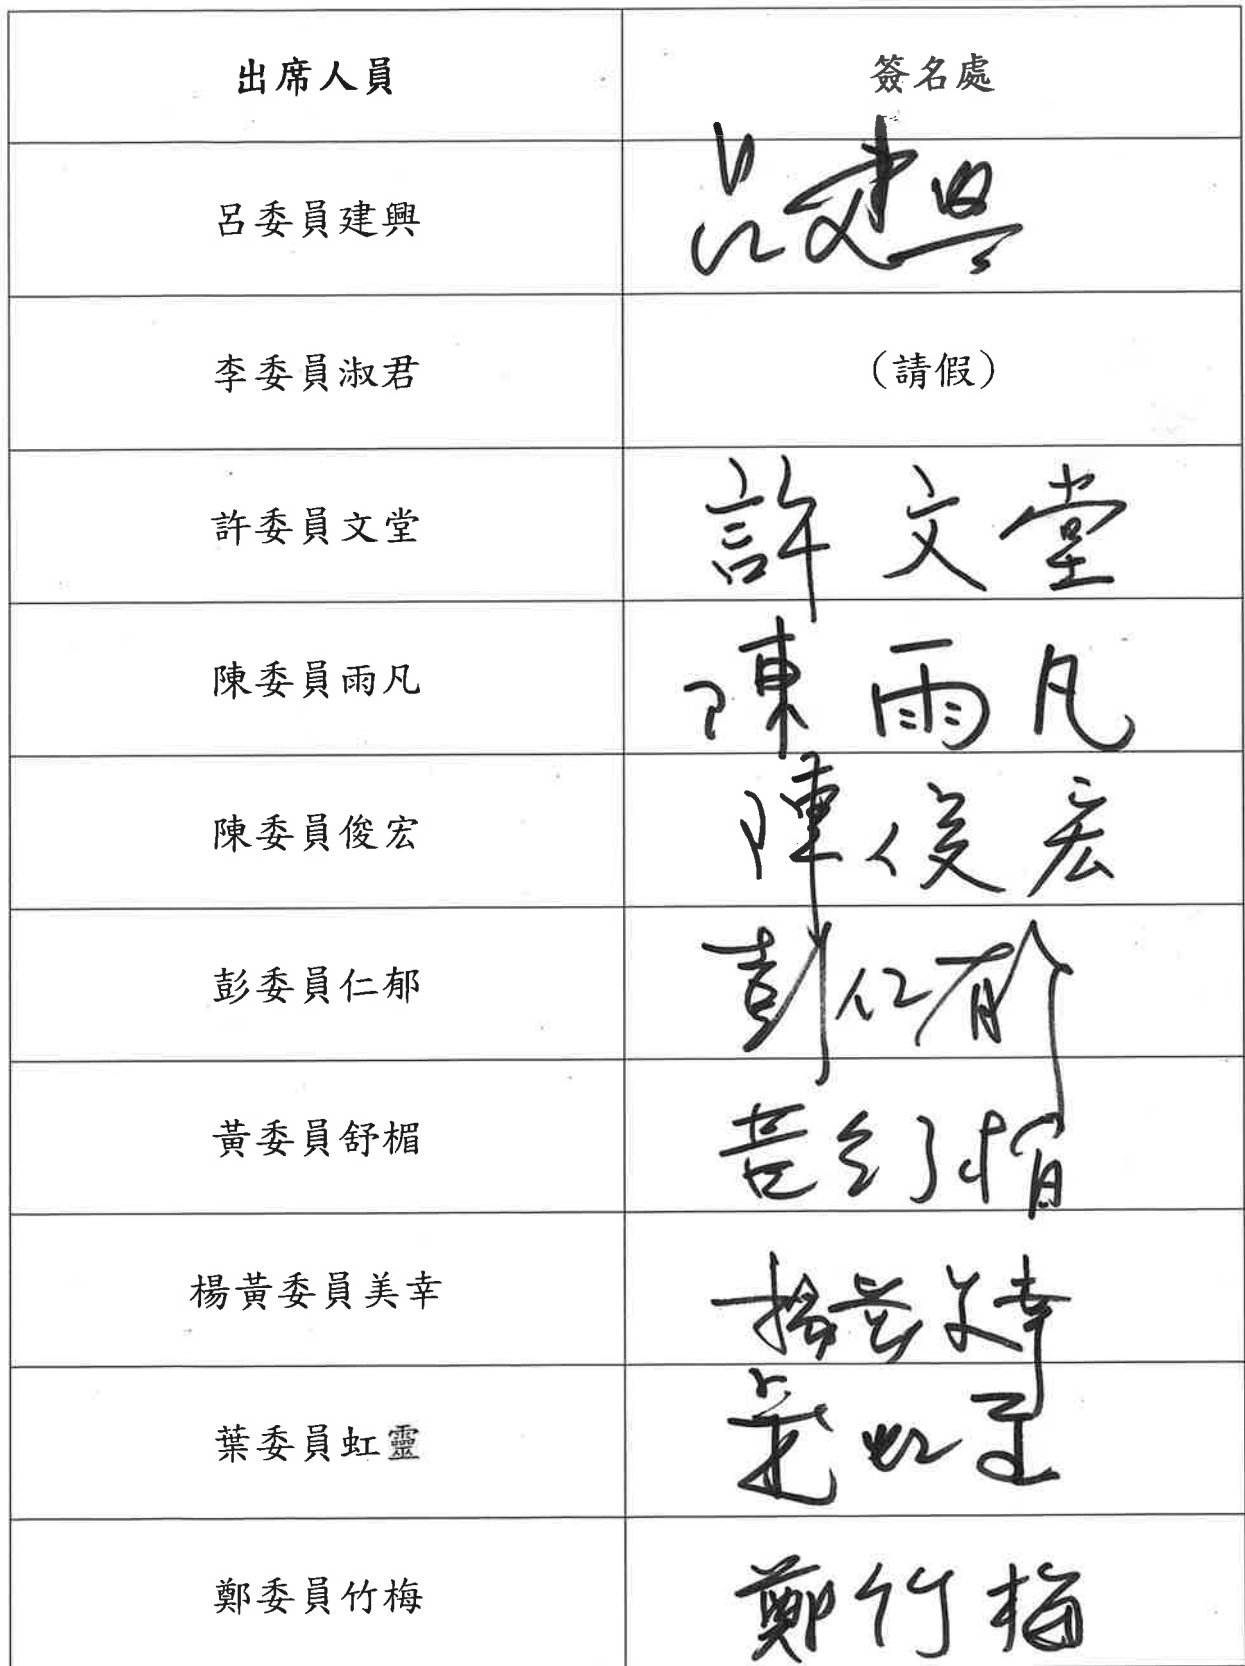 出席人員 簽名處
呂委員建興 呂建興
李委員淑君 (請假)
許委員文堂 許文堂
陳委員雨凡 陳雨凡
陳委員俊宏 陳俊宏
彭委員仁郁 彭仁郁
黃委員舒楣 黃舒楣
楊黃委員美幸 楊黃美幸
葉委員虹靈 葉虹靈
鄭委員竹梅 鄭竹梅